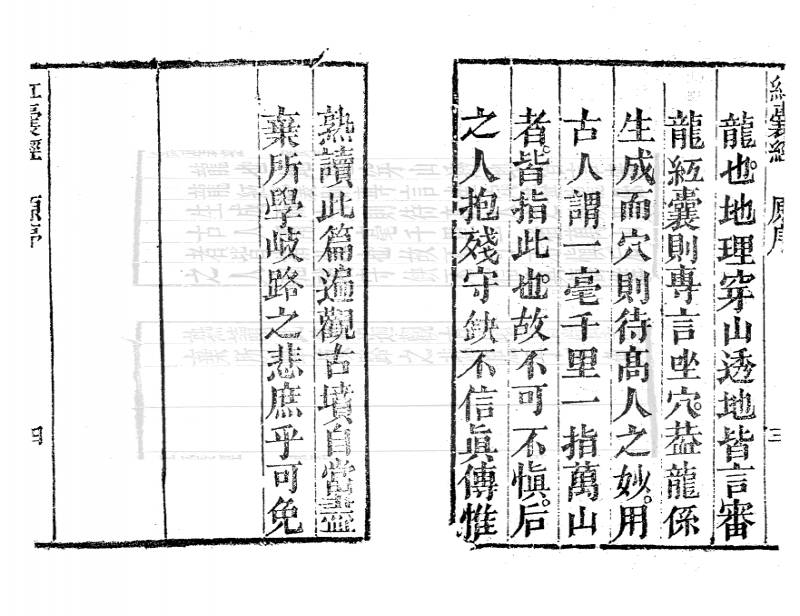 紅囊經 原序 三
龍也。地理穿山透地皆言審
龍紅囊則專言坐穴。葢龍係
生成而穴則待高人之妙。用
古人謂一毫千里一指萬山
者。皆指此也。故不可不愼。后
之人抱殘守缺不信眞傳惟
熟讀此篇遍觀古墳自當盡
棄所學歧路之悲庶乎可免
紅囊經 原序 四